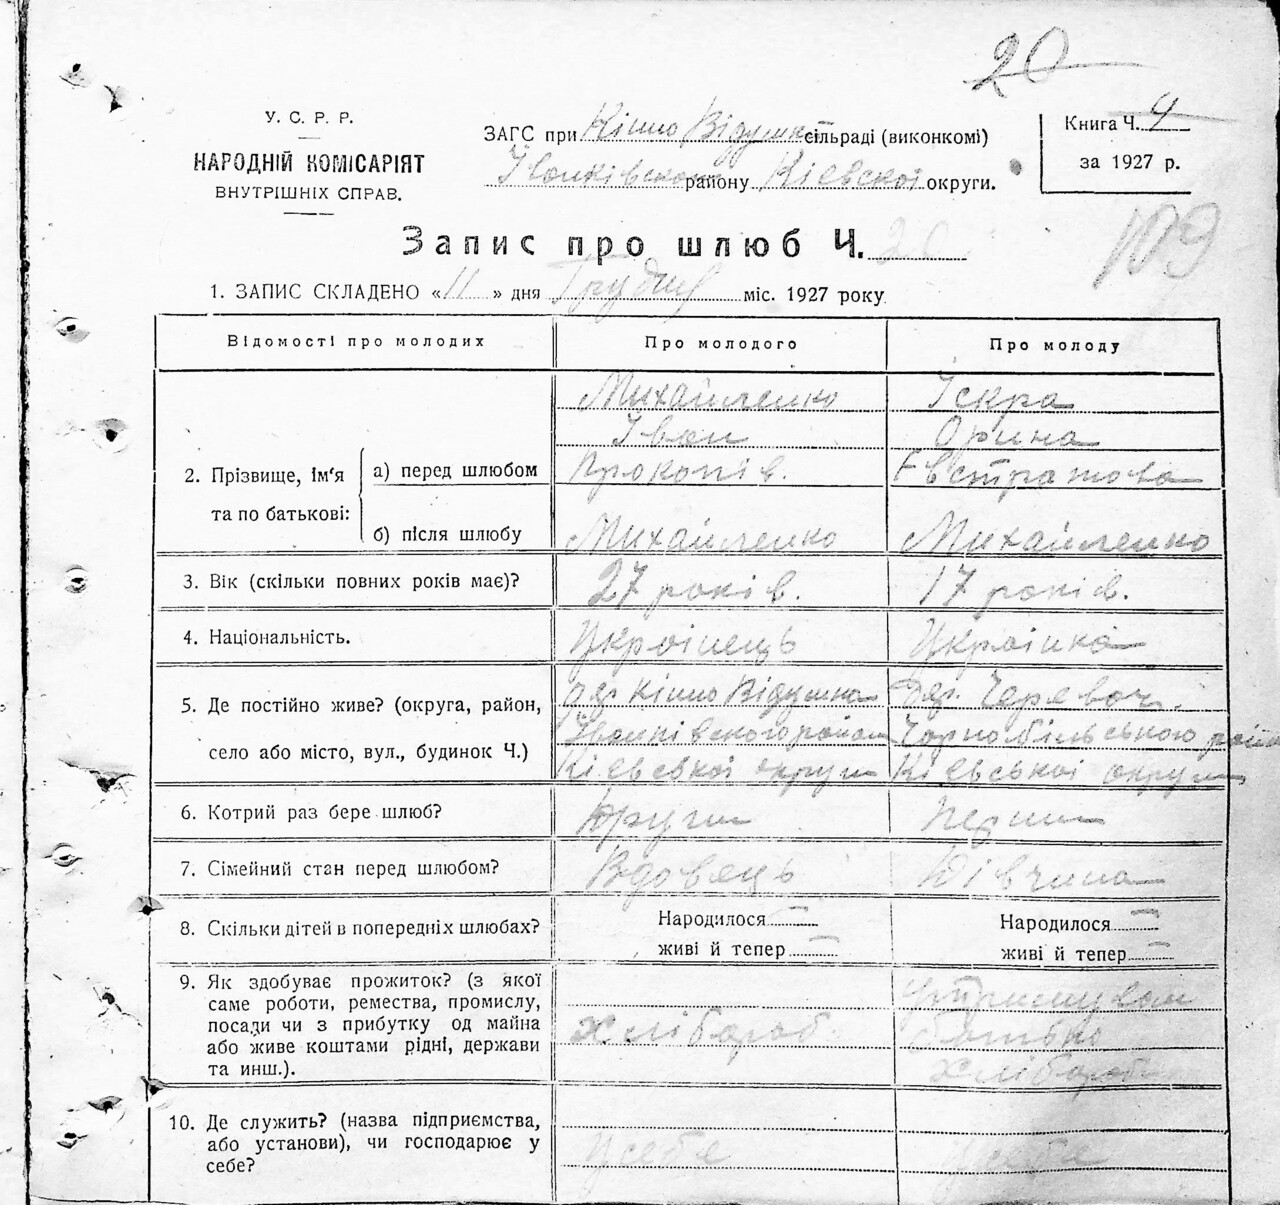 20
У. С. Р. Р.
НАРОДНІЙ КОМІСАРІЯТ
ВНУТРІШНІХ СПРАВ.
ЗАГС при Кішно Відумка сільраді (виконкомі)
Іванківском району Кіевскоі округи.
Книга Ч. 4
за 1927 р.
109
Запис про шлюб Ч. 20
1. ЗАПИС СКЛАДЕНО «11» дня Грудня міс. 1927 року
Відомості про молодих Про молодого Про молоду
2. Прізвище, ім'я та по батькові:
а) перед шлюбом
Михайленко Іскра
Іван Орина
Прокопів. Евстратова
б) після шлюбу Михайленко Михайленко
3. Вік (скільки повних років має)? 27 років. 17 років.
4. Національність. Украінець Украінка
5. Де постійно живе? (округа, район, село або місто, вул., будинок Ч.)
Кішно Відумка Черевач.
Іванківского район Чорнобільського рай
Кіевскоі округи Кіевськоі округи
6. Котрий раз бере шлюб? Други Перши
7. Сімейний стан перед шлюбом? Вдовець Дівчина
8. Скільки дітей в попередніх шлюбах? Народилося — Народилося —
живі й тепер — живі й тепер —
9. Як здобуває прожиток? (з якої
саме роботи, ремества, промислу,
посади чи з прибутку од майна
або живе коштами рідні, держави
та инш.).
хлібороб
батько
хлібороб
10. Де служить? (назва підприємства,
або установи), чи господарює у
себе?
у себе у себе